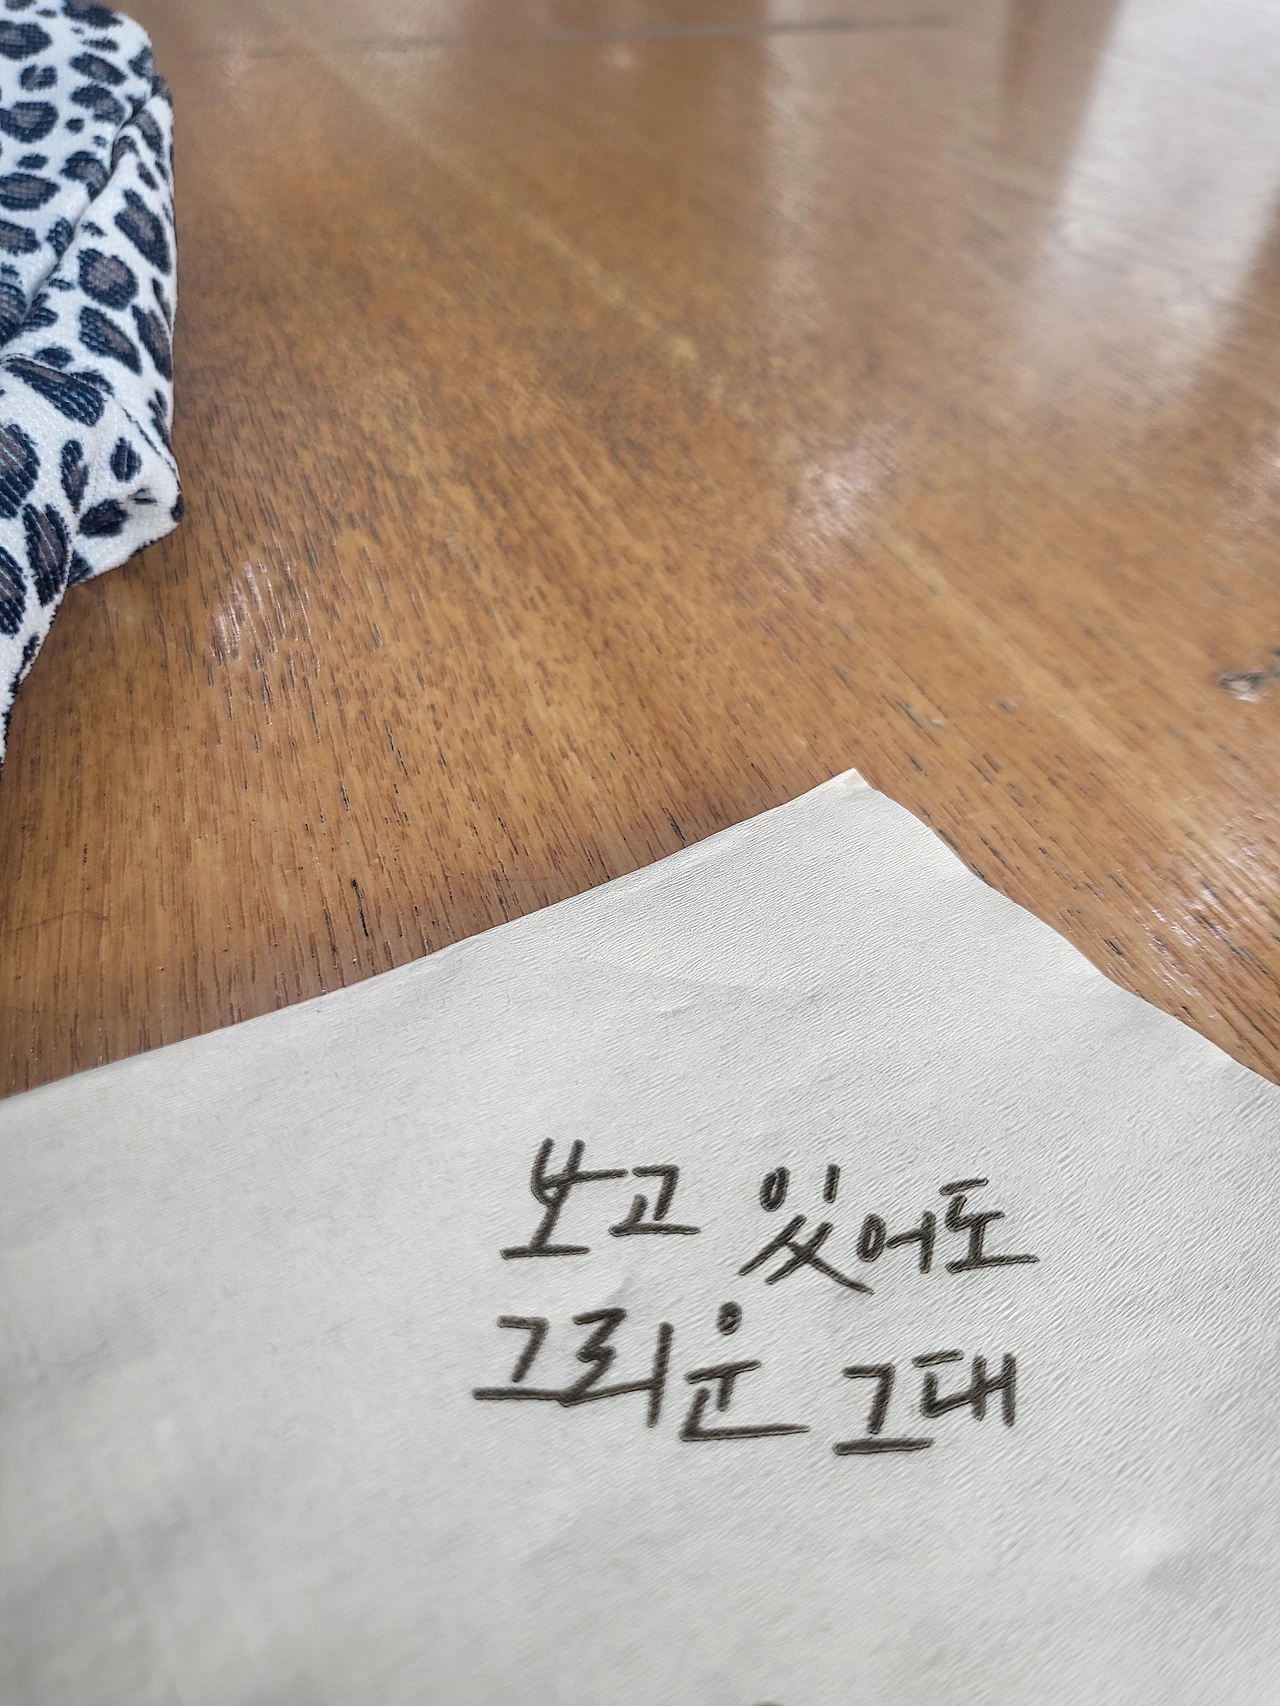 보고 있어도
그리운 그대